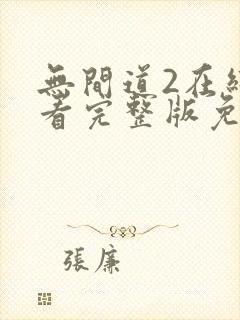 無間道2在
看完整版免
張廉